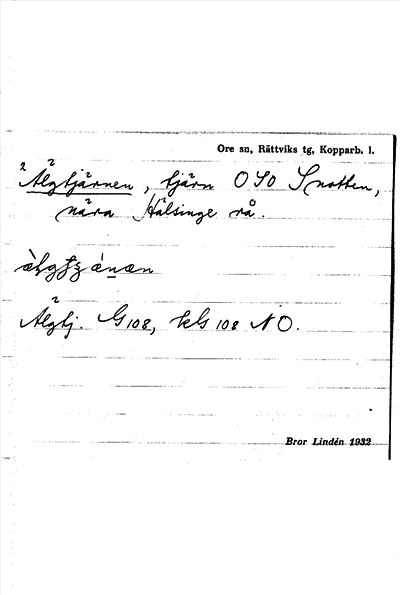 Ore sn, Rättviks tg, Kopparb. l.
2 Älgtjärnen, tjärn OSO Snotten,
nära Hälsinge rå.
Älgtj. G108, kls 108 NO.
Bror Lindén 1932